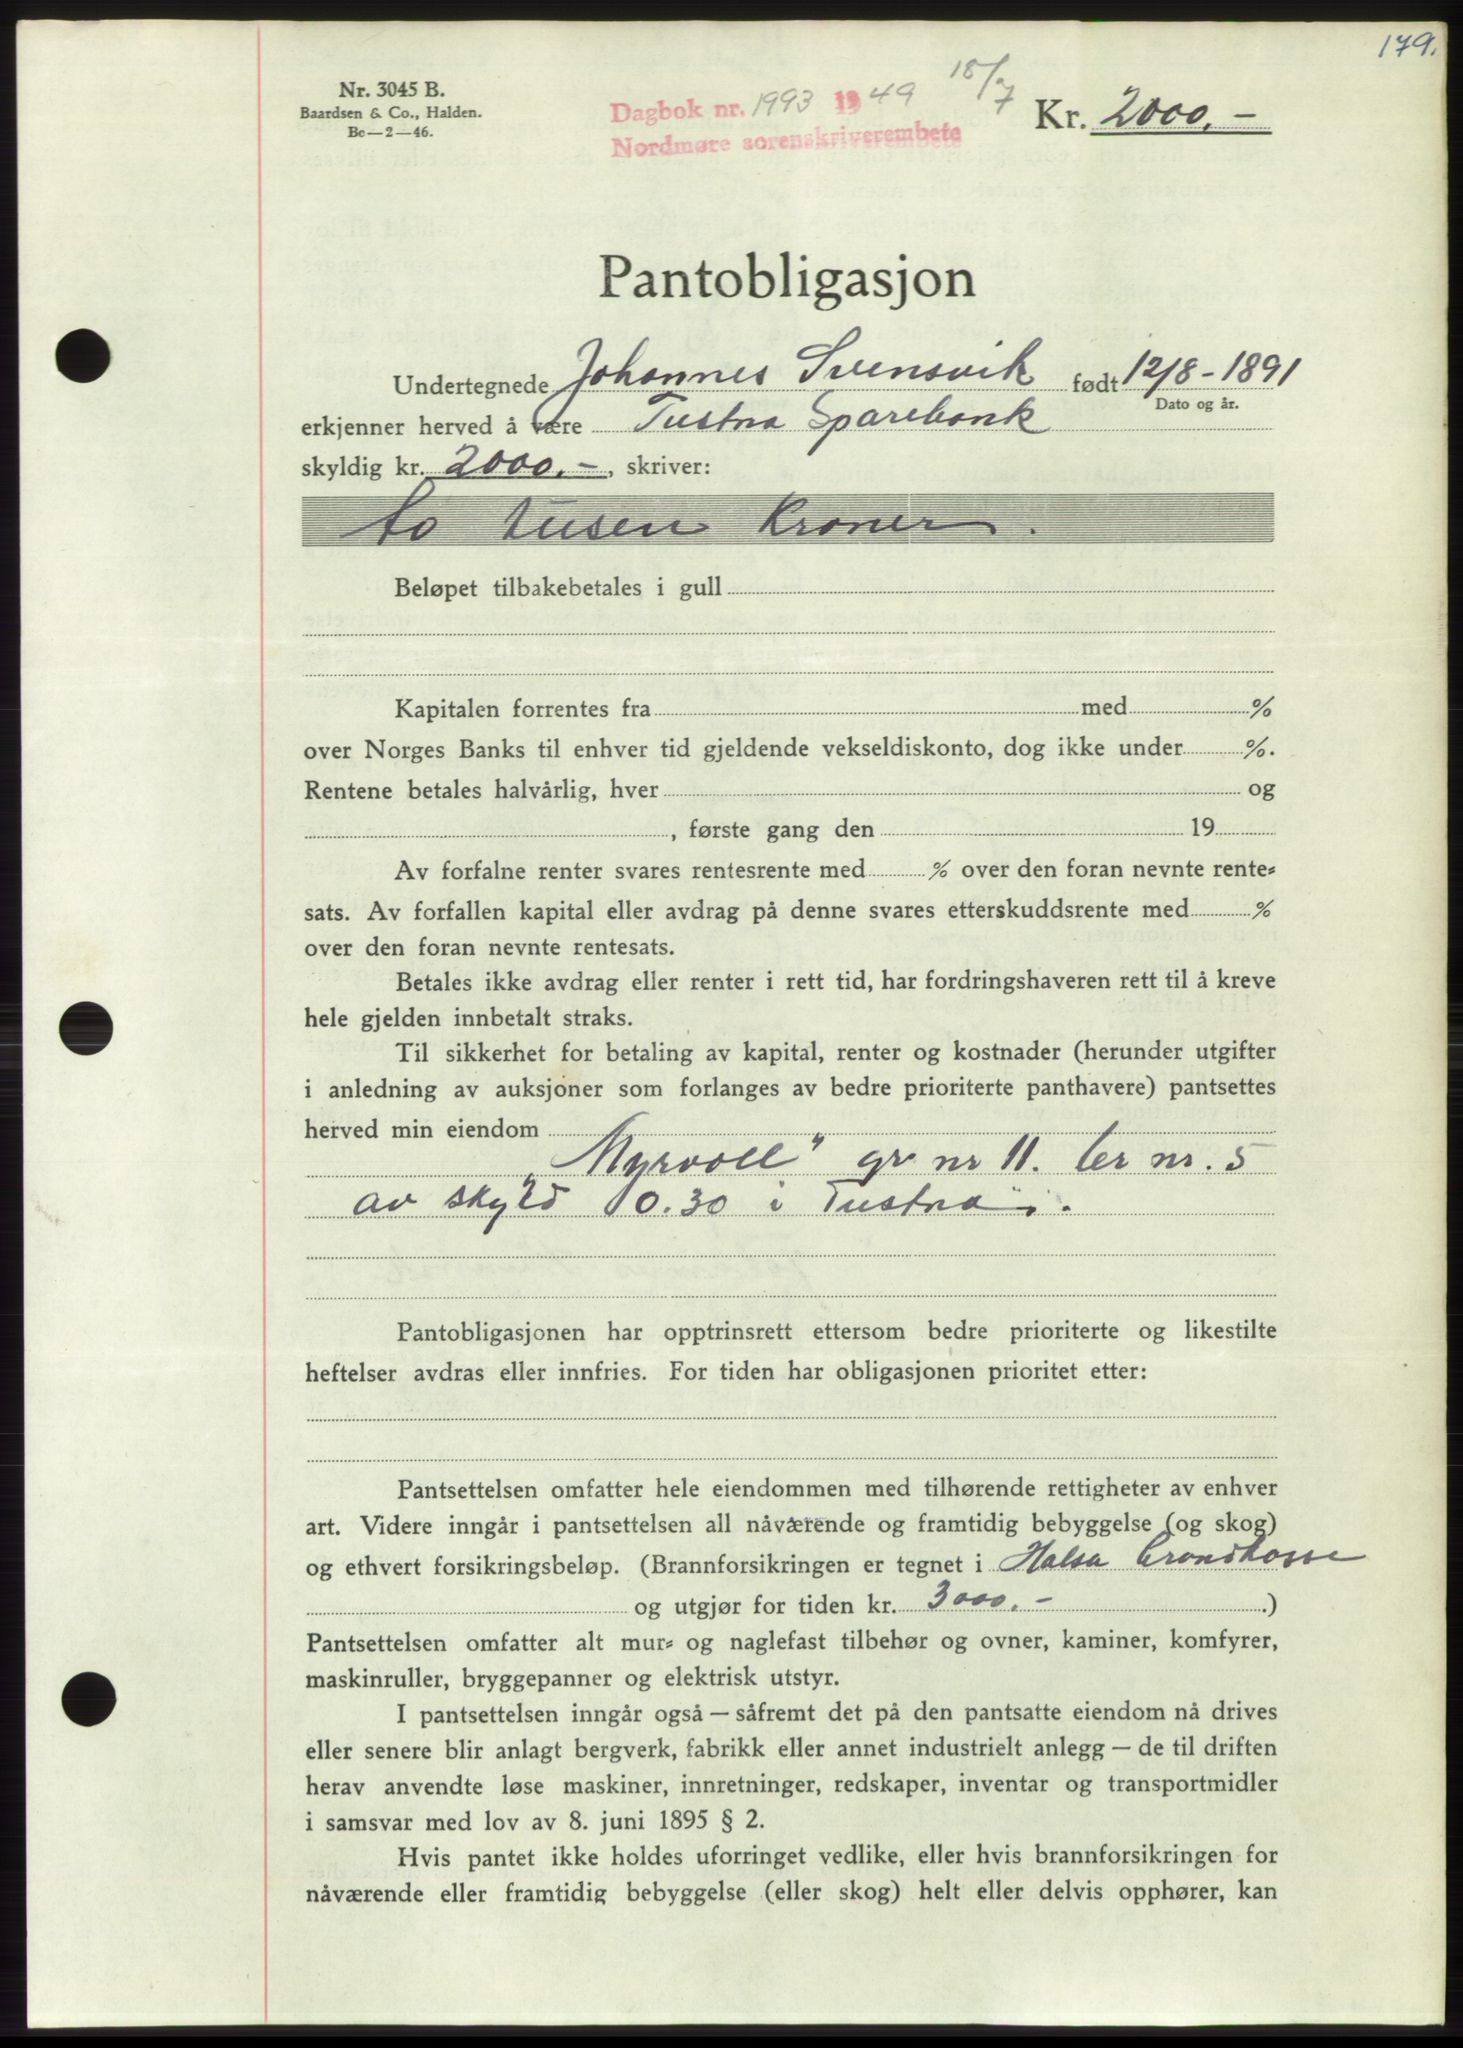 179.
Nr. 3045 B.
Baardsen & Co., Halden.
Bc—2—46.
Dagbok nr. 1993 1949 18/7
Nordmøre sorenskriverembete
Kr. 2000.-
Pantobligasjon
Undertegnede Johannes Svensvik født 12/8-1891
Dato og år.
erkjenner herved å være Tustna Sparebank
skyldig kr. 2000.-, skriver:
to tusen kroner.
Beløpet tilbakebetales i gull
Kapitalen forrentes fra med %
over Norges Banks til enhver tid gjeldende vekseldiskonto, dog ikke under %.
Rentene betales halvårlig, hver og
, første gang den 19
Av forfalne renter svares rentesrente med % over den foran nevnte rente-
sats. Av forfallen kapital eller avdrag på denne svares etterskuddsrente med %
over den foran nevnte rentesats.
Betales ikke avdrag eller renter i rett tid, har fordringshaveren rett til å kreve
hele gjelden innbetalt straks.
Til sikkerhet for betaling av kapital, renter og kostnader (herunder utgifter
i anledning av auksjoner som forlanges av bedre prioriterte panthavere) pantsettes
herved min eiendom
"Myrvoll" gr nr 11. br nr. 5
av skyld 0.30 i Tustna.
Pantobligasjonen har opptrinsrett ettersom bedre prioriterte og likestilte
heftelser avdras eller innfries. For tiden har obligasjonen prioritet etter:
Pantsettelsen omfatter hele eiendommen med tilhørende rettigheter av enhver
art. Videre inngår i pantsettelsen all nåværende og framtidig bebyggelse (og skog)
og ethvert forsikringsbeløp. (Brannforsikringen er tegnet i Halsa Brandkasse
og utgjør for tiden kr. 3000.- )
Pantsettelsen omfatter alt mur- og naglefast tilbehør og ovner, kaminer, komfyrer,
maskinruller, bryggepanner og elektrisk utstyr.
I pantsettelsen inngår også — såfremt det på den pantsatte eiendom nå drives
eller senere blir anlagt bergverk, fabrikk eller annet industrielt anlegg — de til driften
herav anvendte løse maskiner, innretninger, redskaper, inventar og transportmidler
i samsvar med lov av 8. juni 1895 § 2.
Hvis pantet ikke holdes uforringet vedlike, eller hvis brannforsikringen for
nåværende eller framtidig bebyggelse (eller skog) helt eller delvis opphører, kan